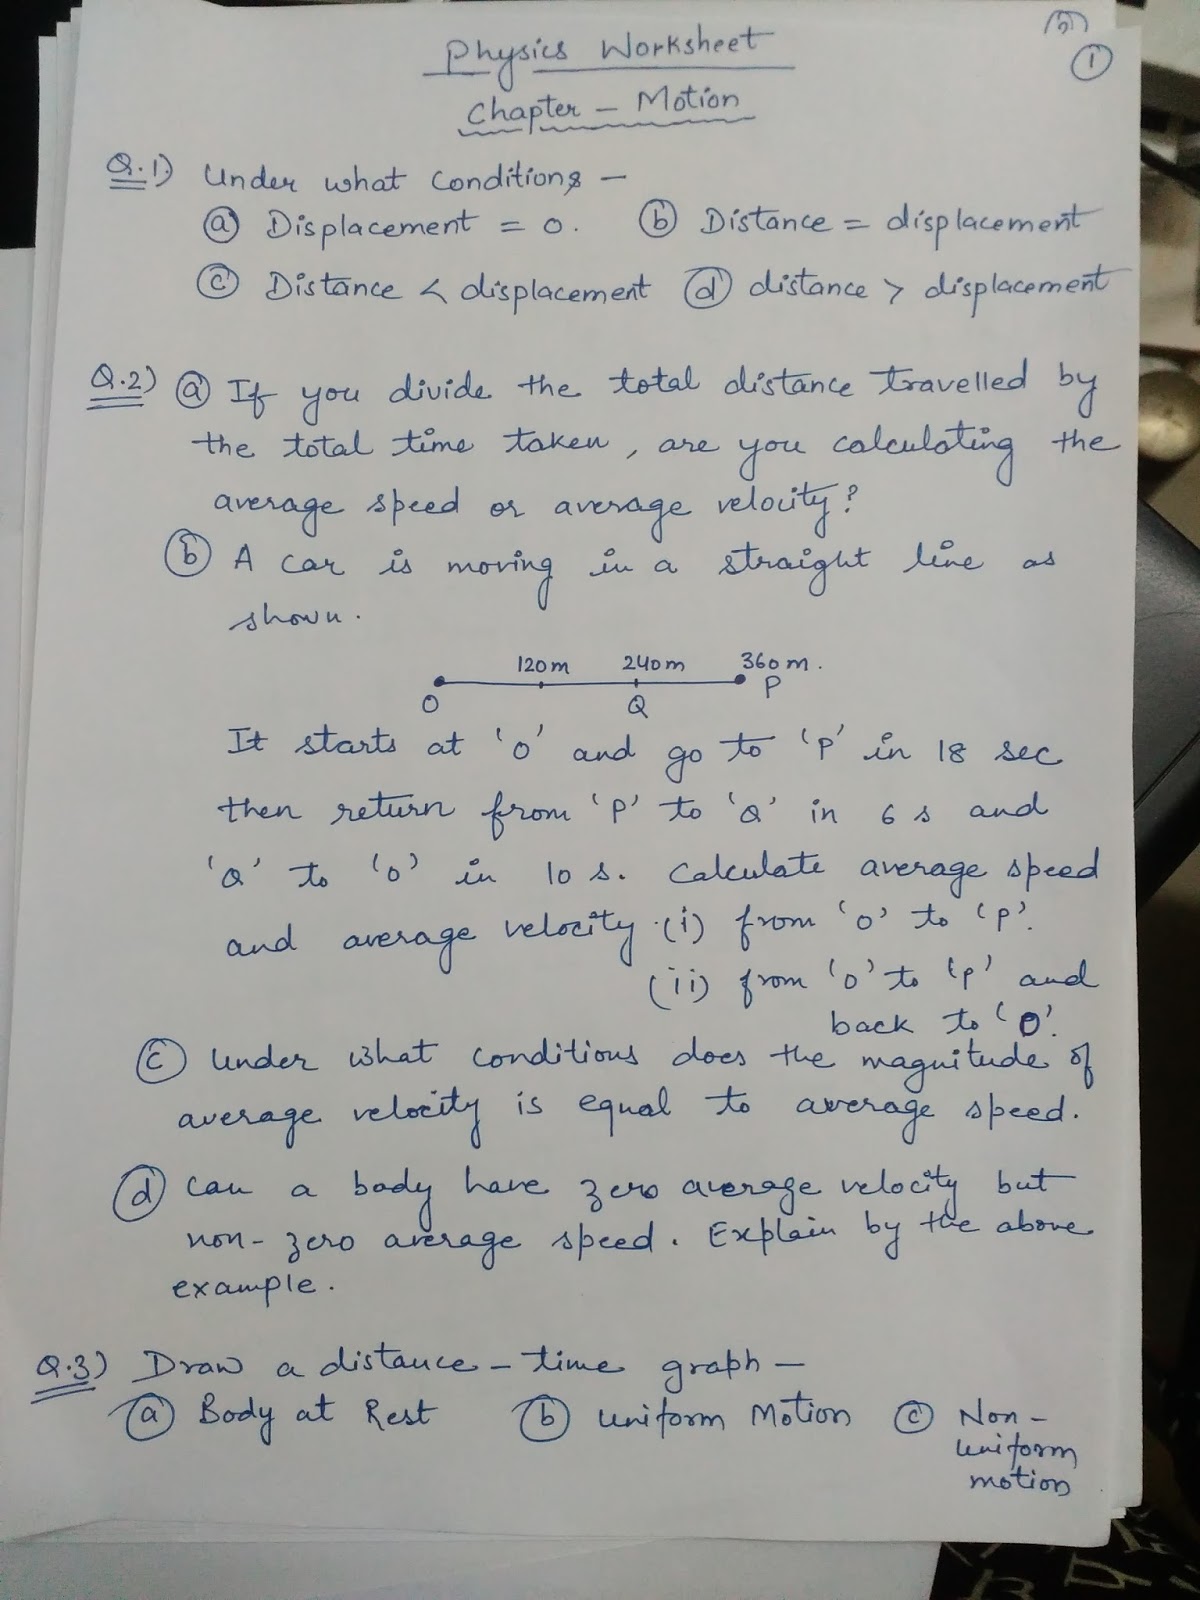 Physics Worksheet
1
Chapter - Motion
Q.1) Under what conditions -
(a) Displacement = 0. (b) Distance = displacement
(c) Distance < displacement (d) distance > displacement
Q.2) (a) If you divide the total distance travelled by
the total time taken, are you calculating the
average speed or average velocity?
(b) A car is moving in a straight line as
shown.
120m 240m 360m.
O Q P
It starts at 'O' and go to 'P' in 18 sec
then return from 'P' to 'Q' in 6 s and
'Q' to 'O' in 10 s. Calculate average speed
and average velocity (i) from 'O' to 'P'.
(ii) from 'O' to 'P' and
back to 'O'.
(c) Under what conditions does the magnitude of
average velocity is equal to average speed.
(d) Can a body have zero average velocity but
non-zero average speed. Explain by the above
example.
Q.3) Draw a distance - time graph -
(a) Body at Rest (b) Uniform Motion (c) Non-
uniform
motion